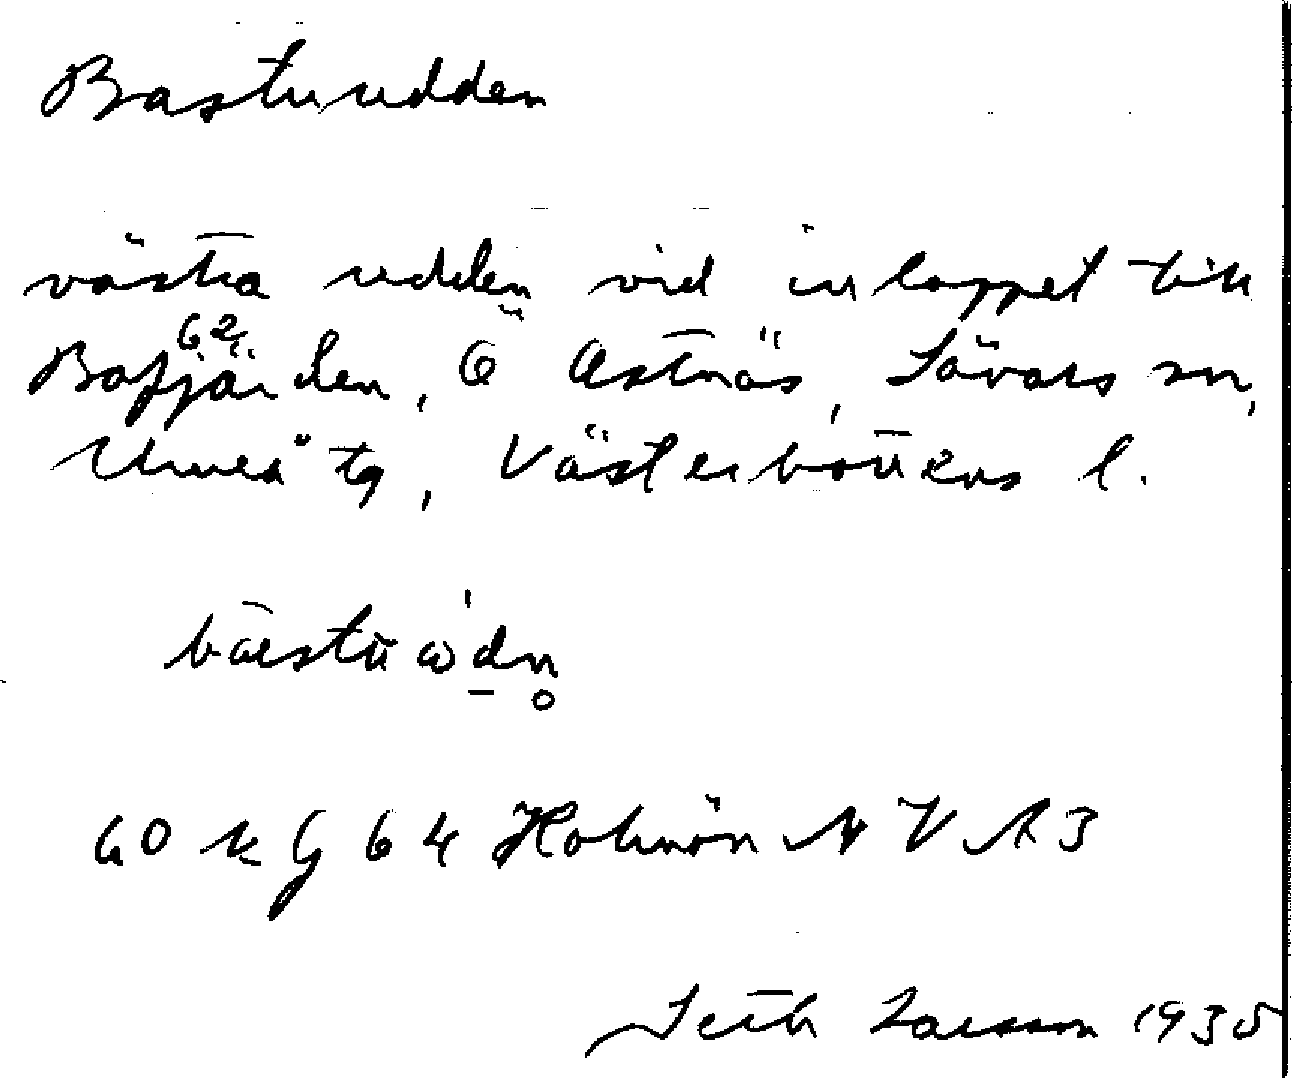 Bastuudden
västra udden vid inloppet till
62
Bofjärden, Ö Ostnäs, Sävars sn,
Umeå tg, Västerbottens l.
60 k G 64 Holmön NV A3
Seth Larsson 1935